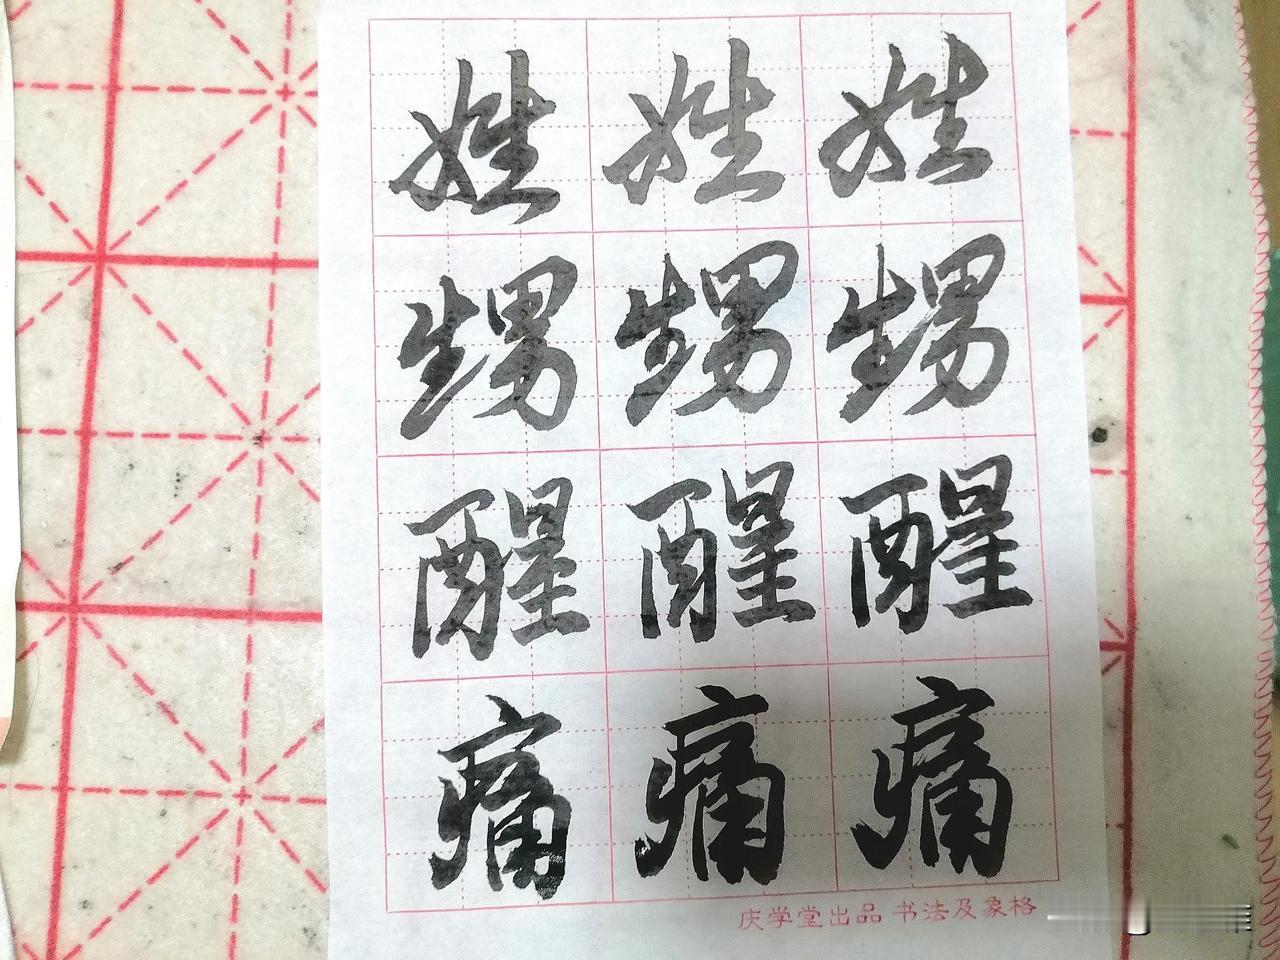 姓 姓 姓
甥 甥 甥
醒 醒 醒
痛 痛 痛
庆学堂出品 书法及象格